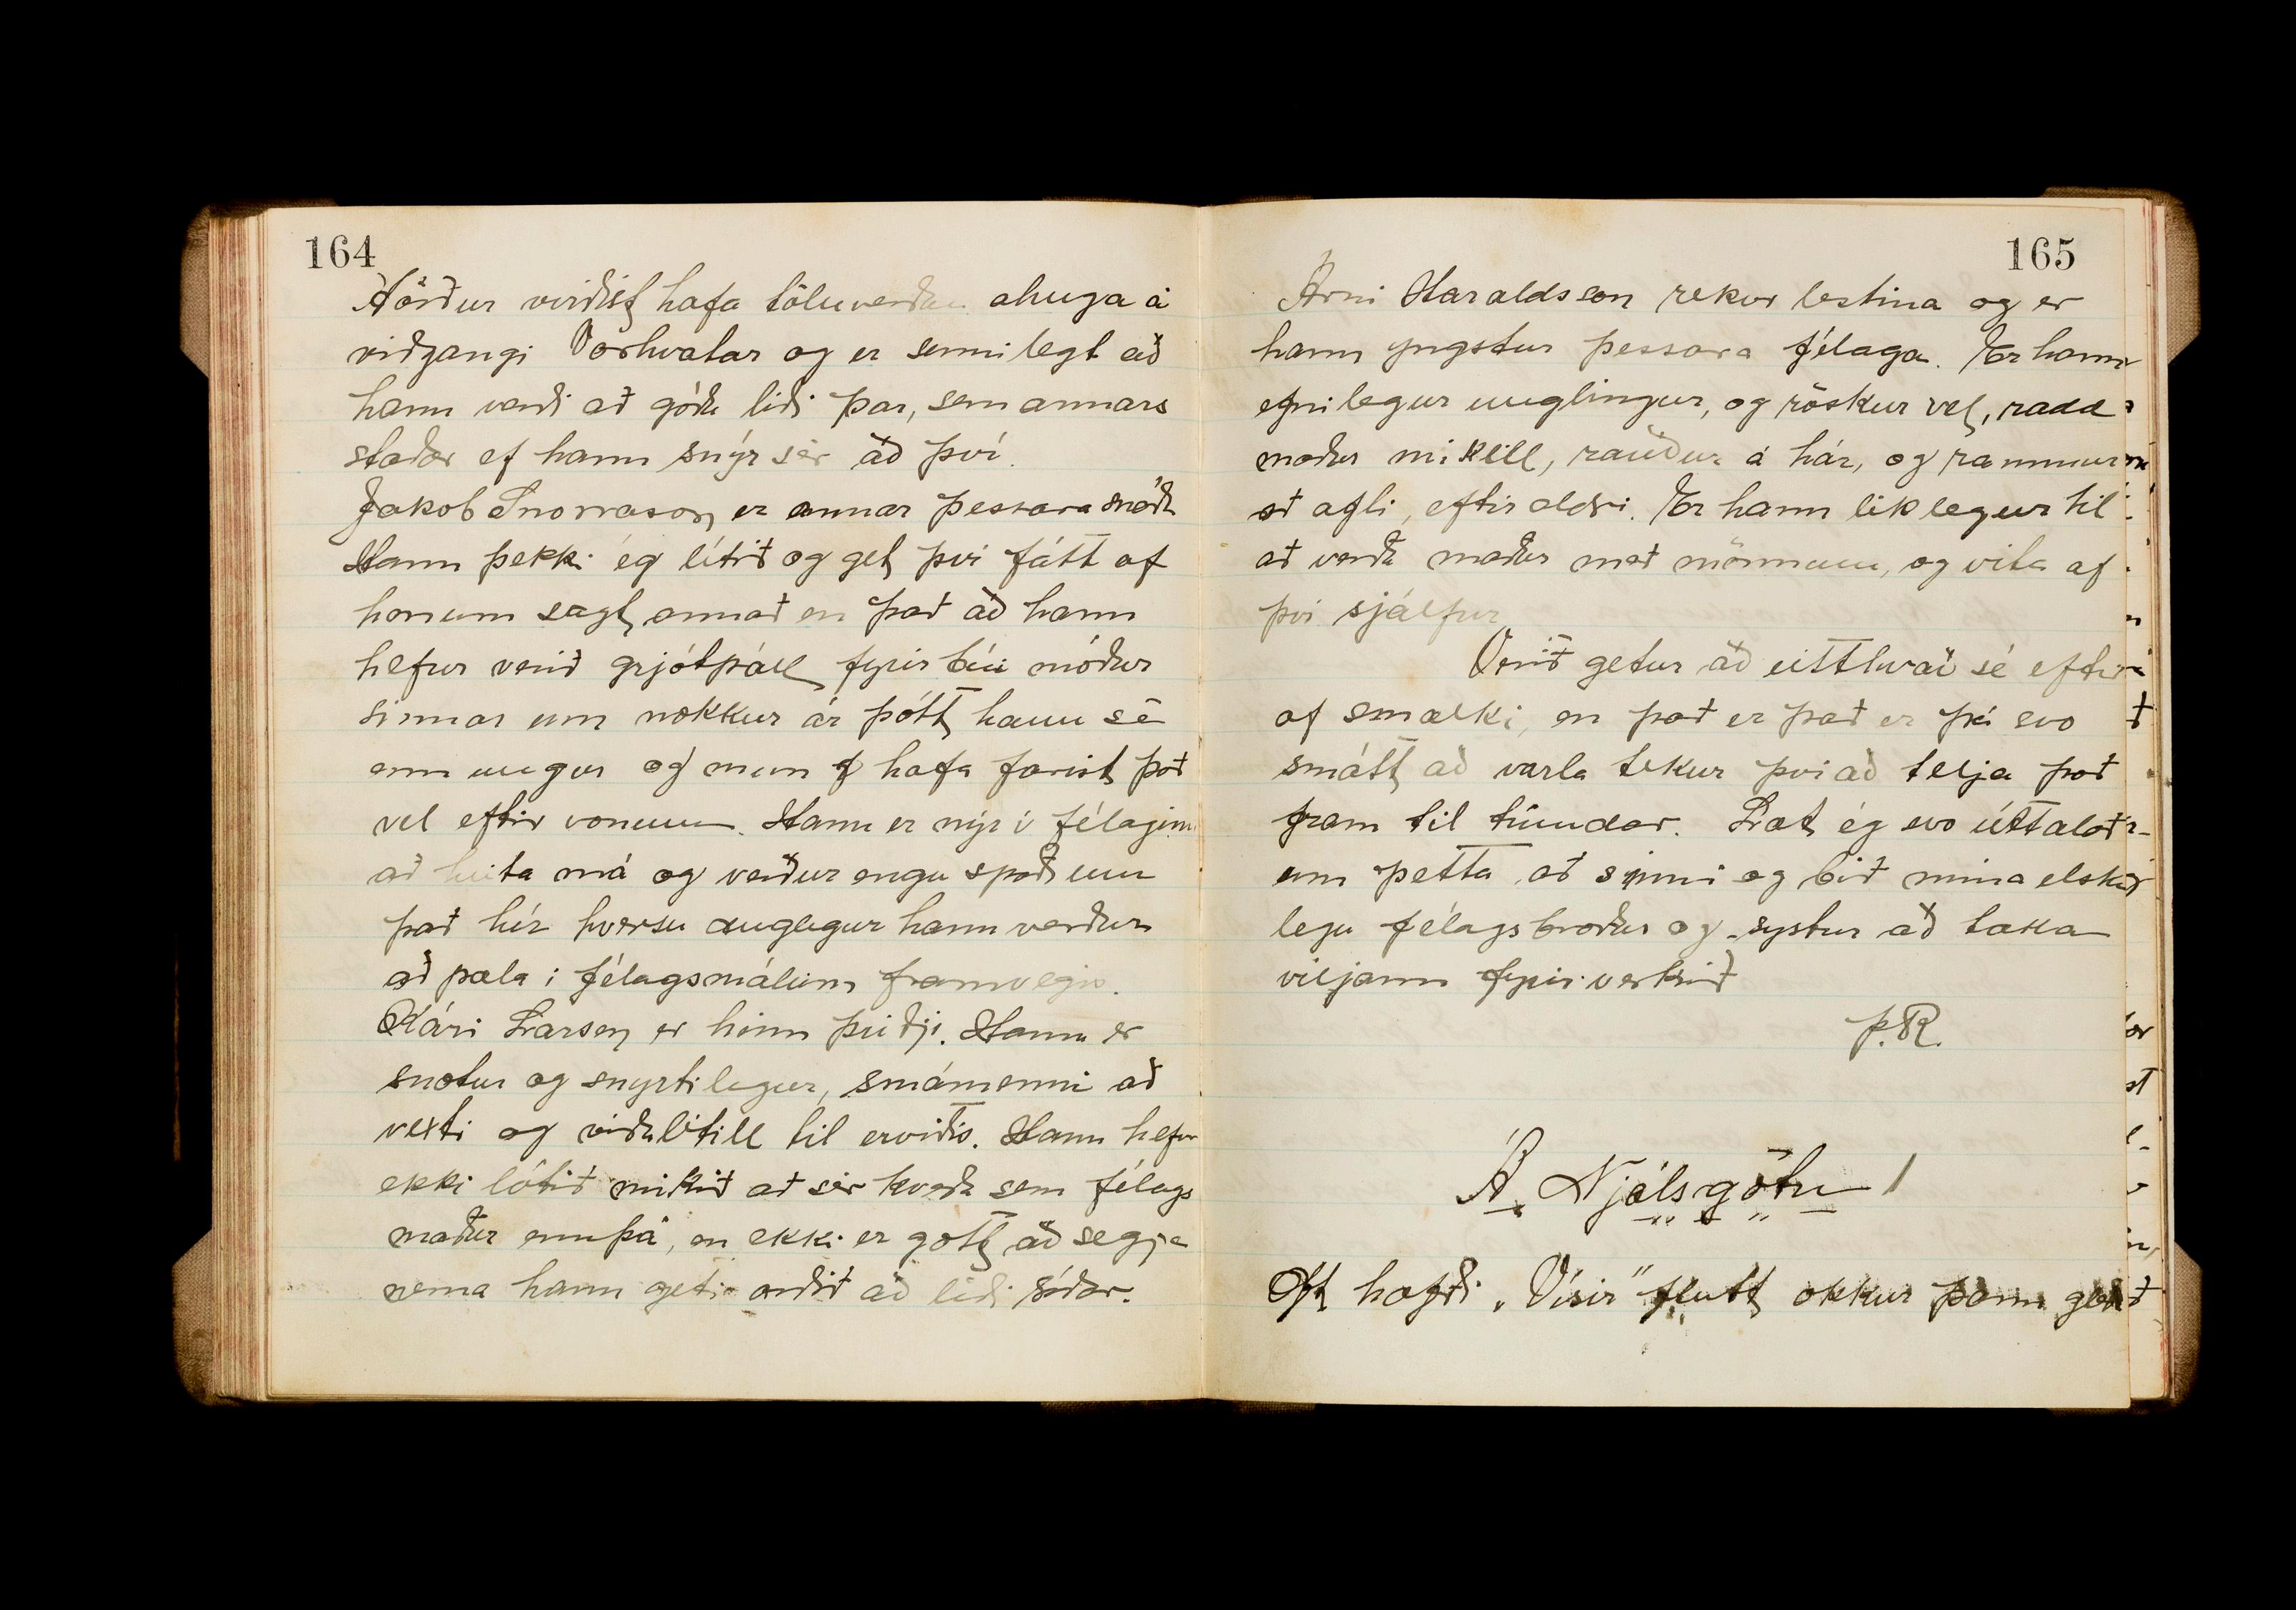 164
Hörður virðist hafa töluverðan ahuga á
viðgangi Vorhvatar og er sennilegt að
hann verði að góðu liði þar, sem annars
staðar ef hann snýr sér að því.
Jakob Snorrason er annar þessara snáða
Hann þekki ég lítið og get því fátt af
honum sagt, annað en það að hann
hefur verið grjótpáll fyrir búi móður
sinnar um nokkur ár þótt hann sé
enn ungur og mun hafa farist það
vel eftir vonum. Hann er nýr í félaginu
að heita má og verður engu spáð um
það hér hversu duglegur hann verður
að pæla í félagsmálum framvegis.
Kári Larsen er hinn þriðji. Hann er
snotur og snyrtilegur, smámenni að
vexti og viðalítill til erviðis. Hann hefur
ekki látið mikið að sér kveða sem félags
maður ennþá, en ekki er gott að segja
nema hann geti orðið að liði síðar.
165
Árni Haraldsson rekur lestina og er
hann yngstur þessara félaga. Er hann
efnilegur unglingur, og röskur vel, radd
maður mikill, rauður á hár, og rammur
að afli, eftir aldri. Er hann liklegur til
að verða maður með mönnum, og vita af
því sjálfur
Verið getur að eitthvað sé eftir
af smælki, en það er það er þá svo
smátt að varla tekur því að telja það
fram til tíundar. Læt ég svo úttalað
um þetta að sinni og bið mina elsku
legu félagsbræður og systur að taka
viljann fyrir verkið
Þ.R.
Á Njálsgötu 1
Oft hafði „Vísir" flutt okkur þann